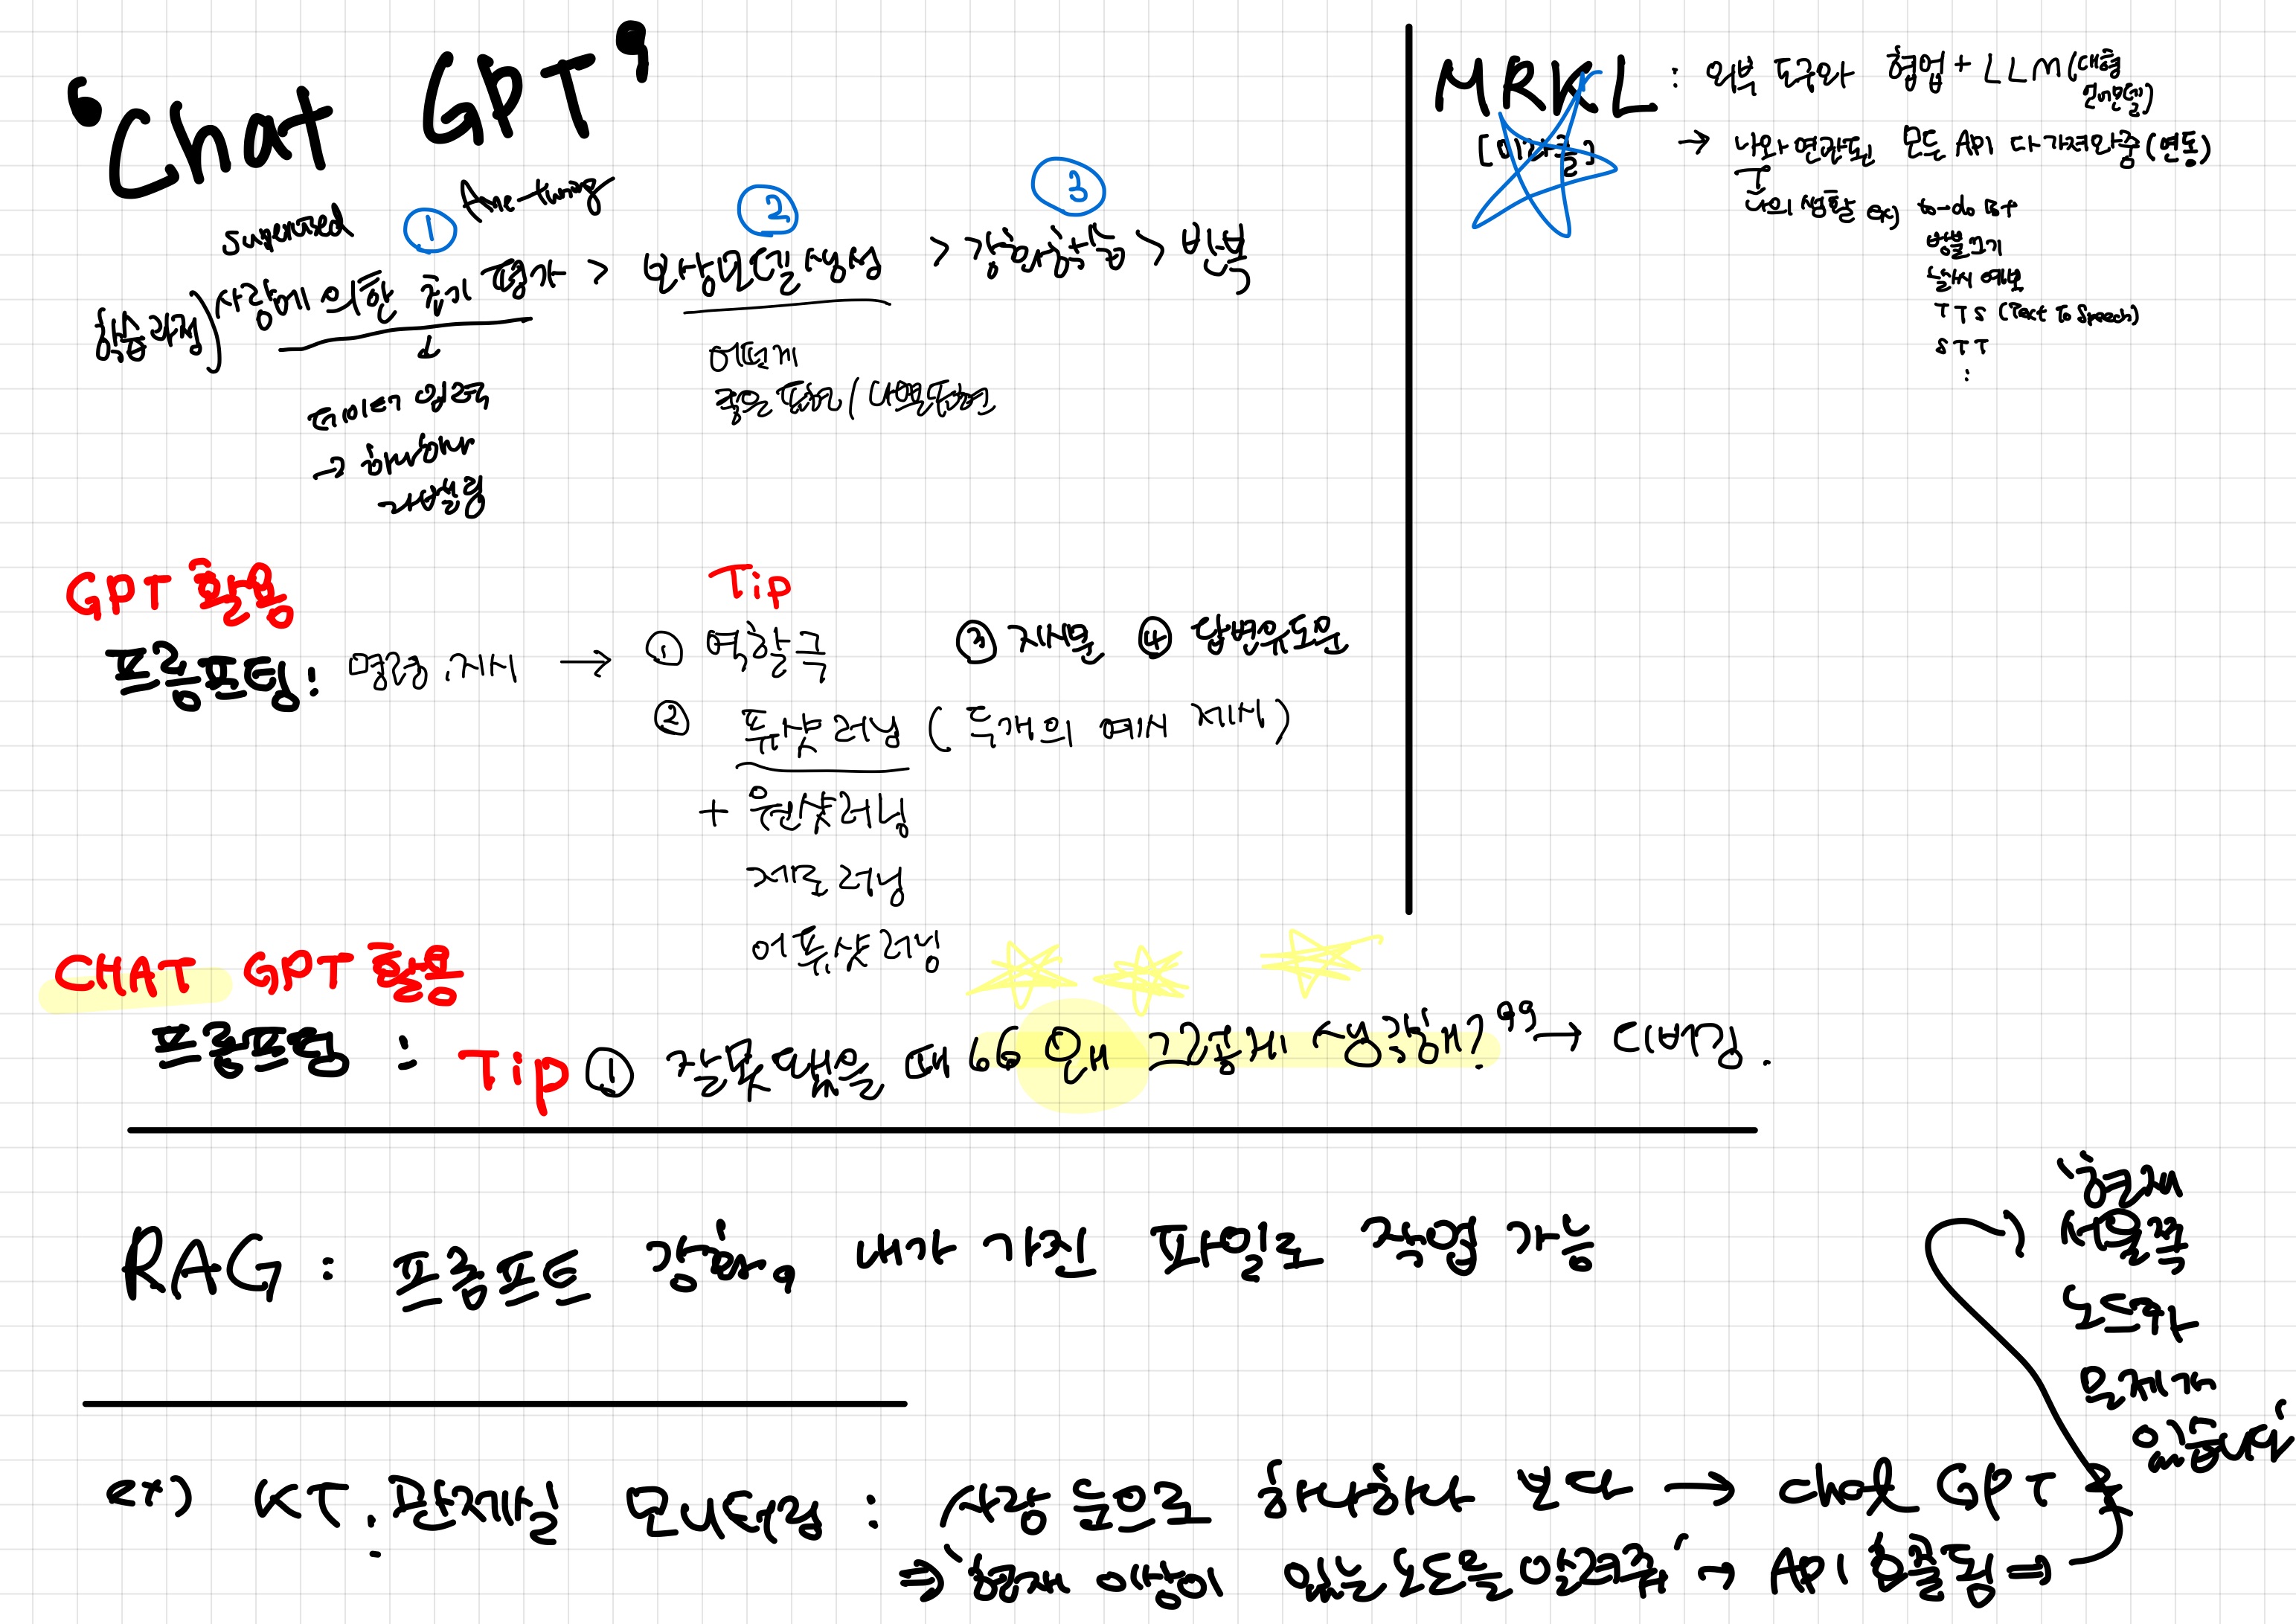 'Chat GPT'
supervised ① fine-tuning ② ③
학습과정) 사람에 의한 초기 평가 > 보상모델 생성 > 강화학습 > 반복
↓
데이터 입력
→ 하나하나
라벨링
어떻게
좋은 답변 / 나쁜답변
MRKL : 외부 도구와 협업 + LLM (대형
언어모델)
[미라클]
→ 나와 연관된 모든 API 다 가져와줌 (연동)
나의 생활 ex) to-do 목록
방불끄기
날씨 예보
TTS (Text To Speech)
STT
:
GPT 활용
Tip
프롬프팅 : 명령, 지시 → ① 역할극 ③ 지시문 ④ 답변유도문
② 퓨샷 러닝 ( 두개의 예시 제시 )
+ 원샷러닝
제로 러닝
어퓨샷 러닝
CHAT GPT 활용
프롬프팅 : Tip ① 잘못 됐을 때 “왜 그렇게 생각해?” → 디버깅.
RAG : 프롬프트 강화, 내가 가진 파일로 작업 가능
ex) KT. 관제실 모니터링 : 사람 눈으로 하나하나 보다 → chat GPT로
⇒ '현재 이상이 있는 노드를 알려줘' → API 호출됨 ⇒
'현재
서울쪽
노드가
문제가
있습니다'